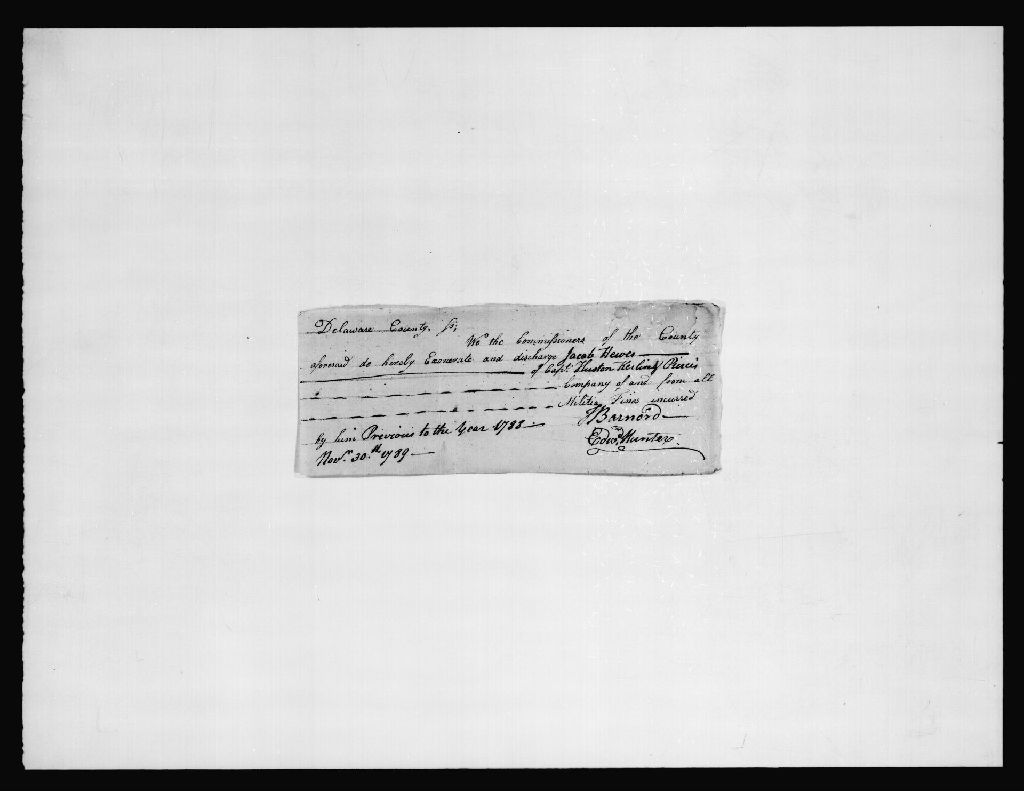 Delaware County, ss;
We the Commissioners of the County
aforesaid do hereby Exonerate and discharge Jacob Hewes
of Capt. Huston
Company of and from all
Militia Fines incurred
by him Previous to the Year 1783
J Barnard
Edwd. Hunter
Novr. 30th 1789